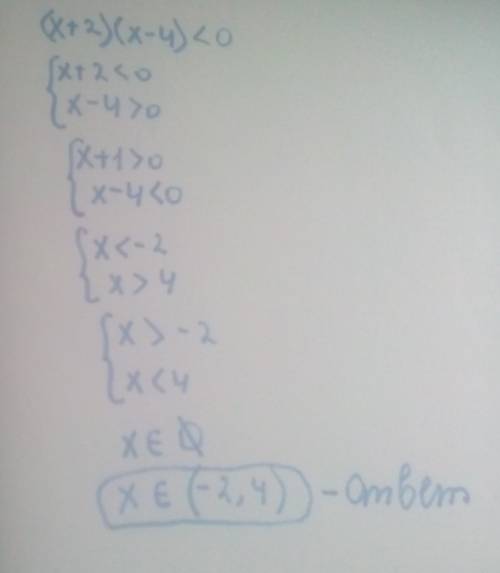 (x+2)(x-4)<0
{x+2<0
x-4>0
{x+1>0
x-4<0
{x<-2
x>4
{x>-2
x<4
x∈∅
x∈(-2,4) - ответ